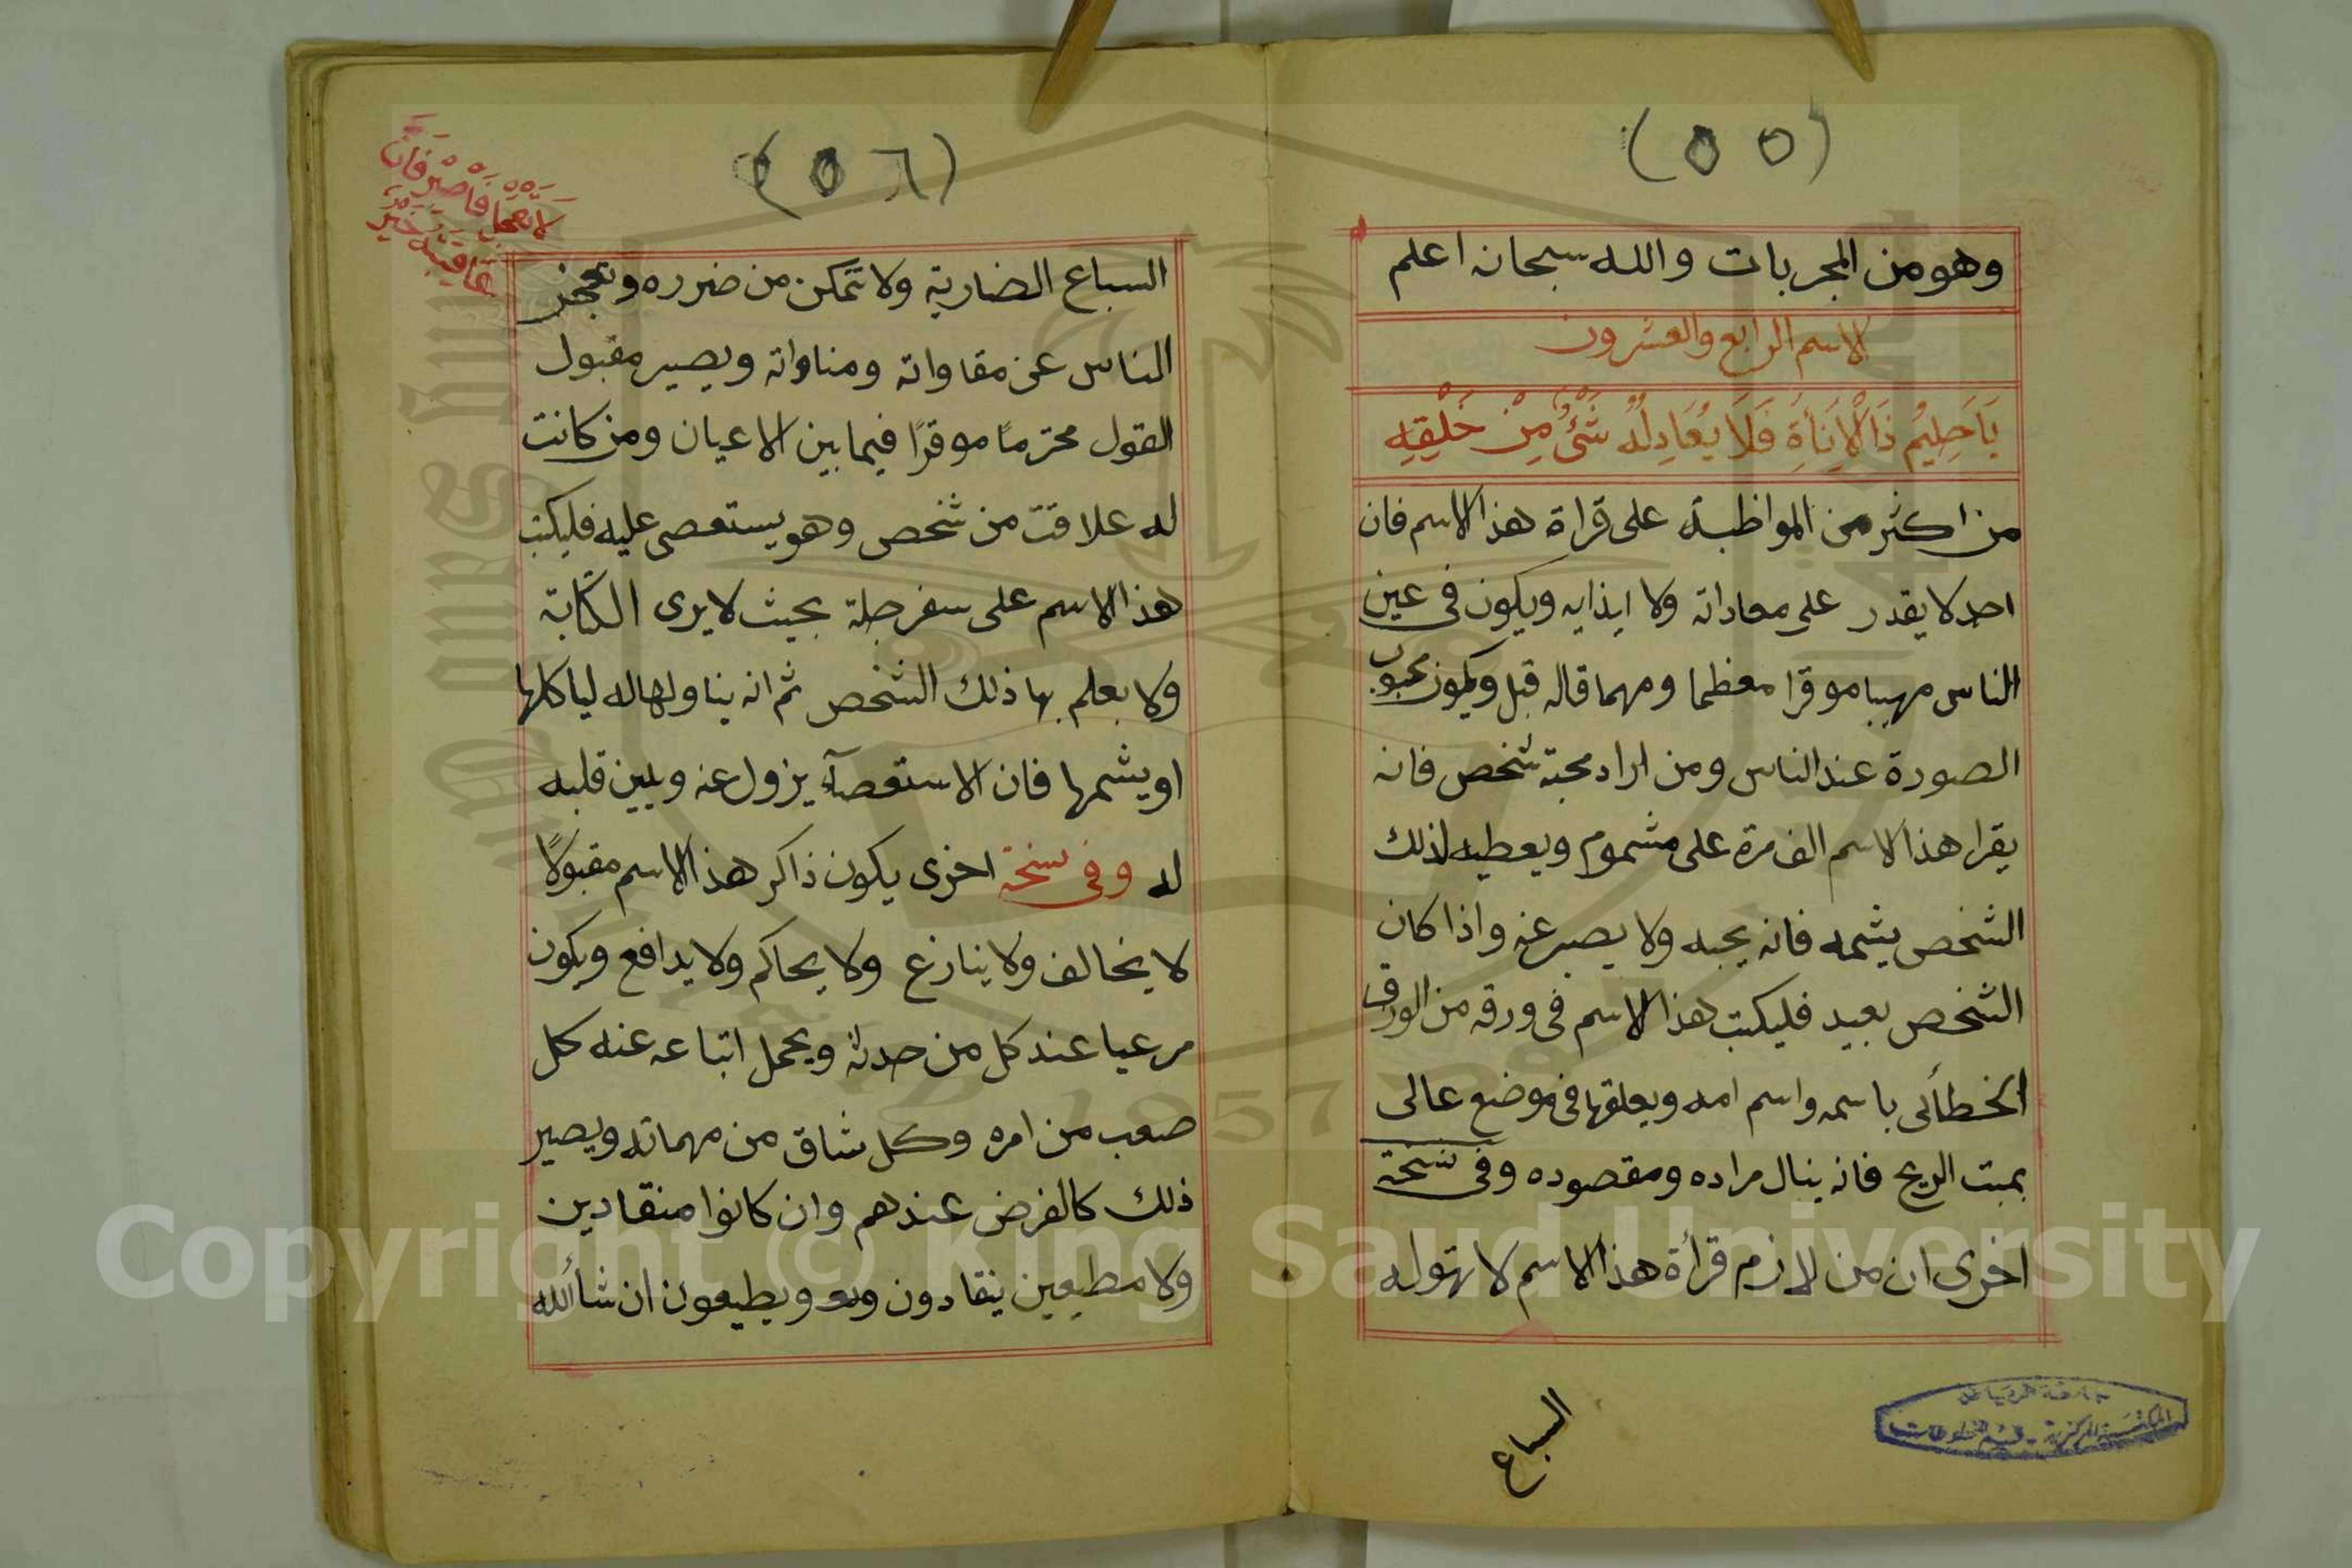 (٥٥)
وهو من المجربات والله سبحانه اعلم
الاسم الرابع والعشرون
يَاحَلِيمُ ذَا الْاَنَاةِ فَلَا يُعَادِلُهُ شَىْءٌ مِنْ خَلْقِهِ
من اكثر من المواظبة على قراة هذا الاسم فان
احد لا يقدر على معاداته ولا ايذايه ويكون فى عين
الناس مهيبا موقرا معظما ومهما قاله قبل ويكون محبوب
الصورة عند الناس ومن اراد محبة شخص فانه
يقرا هذا الاسم الف مرة على مشموم ويعطيه لذلك
الشخص يشمه فانه يحبه ولا يصبر عنه واذا كان
الشخص بعيد فليكتب هذا الاسم فى ورقه من الورق
الخطائى باسمه واسم امه ويعلقها فى موضع عالى
بمبت الريح فانه ينال مراده ومقصوده وفى نسخة
اخرى ان من لازم قرأة هذا الاسم لا تهوله
السباع
جامعة الرياض
المكتبة المركزية - قسم المخطوطات
(٥٦)
لا تعجل فاصبر فان
عاقبته خير
السباع الضارية ولا تتمكن من ضرره وتعجز
الناس عن مقاواته ومناواته ويصير مقبول
القول محترمًا موقرًا فيما بين الاعيان ومن كانت
له علاقت من شخص وهو يستعصى عليه فليكتب
هذا الاسم على سفرجلة بحيث لا يرى الكتابة
ولا يعلم بها ذلك الشخص ثم انه يناولها له لياكلها
او يشمها فان الاستعصآء يزول عنه ويلين قلبه
له وفى نسخة اخرى يكون ذاكر هذا الاسم مقبولًا
لا يخالف ولا ينازع ولا يحاكم ولا يدافع ويكون
مرعيا عند كل من حدثه ويحمل اتباعه عنه كل
صعب من امره وكل شاق من مهماته ويصير
ذلك كالفرض عندهم وان كانوا منقادين
ولا مطيعين ينقادون ويطيعون ان شأالله
Copyright © King Saud University
1957